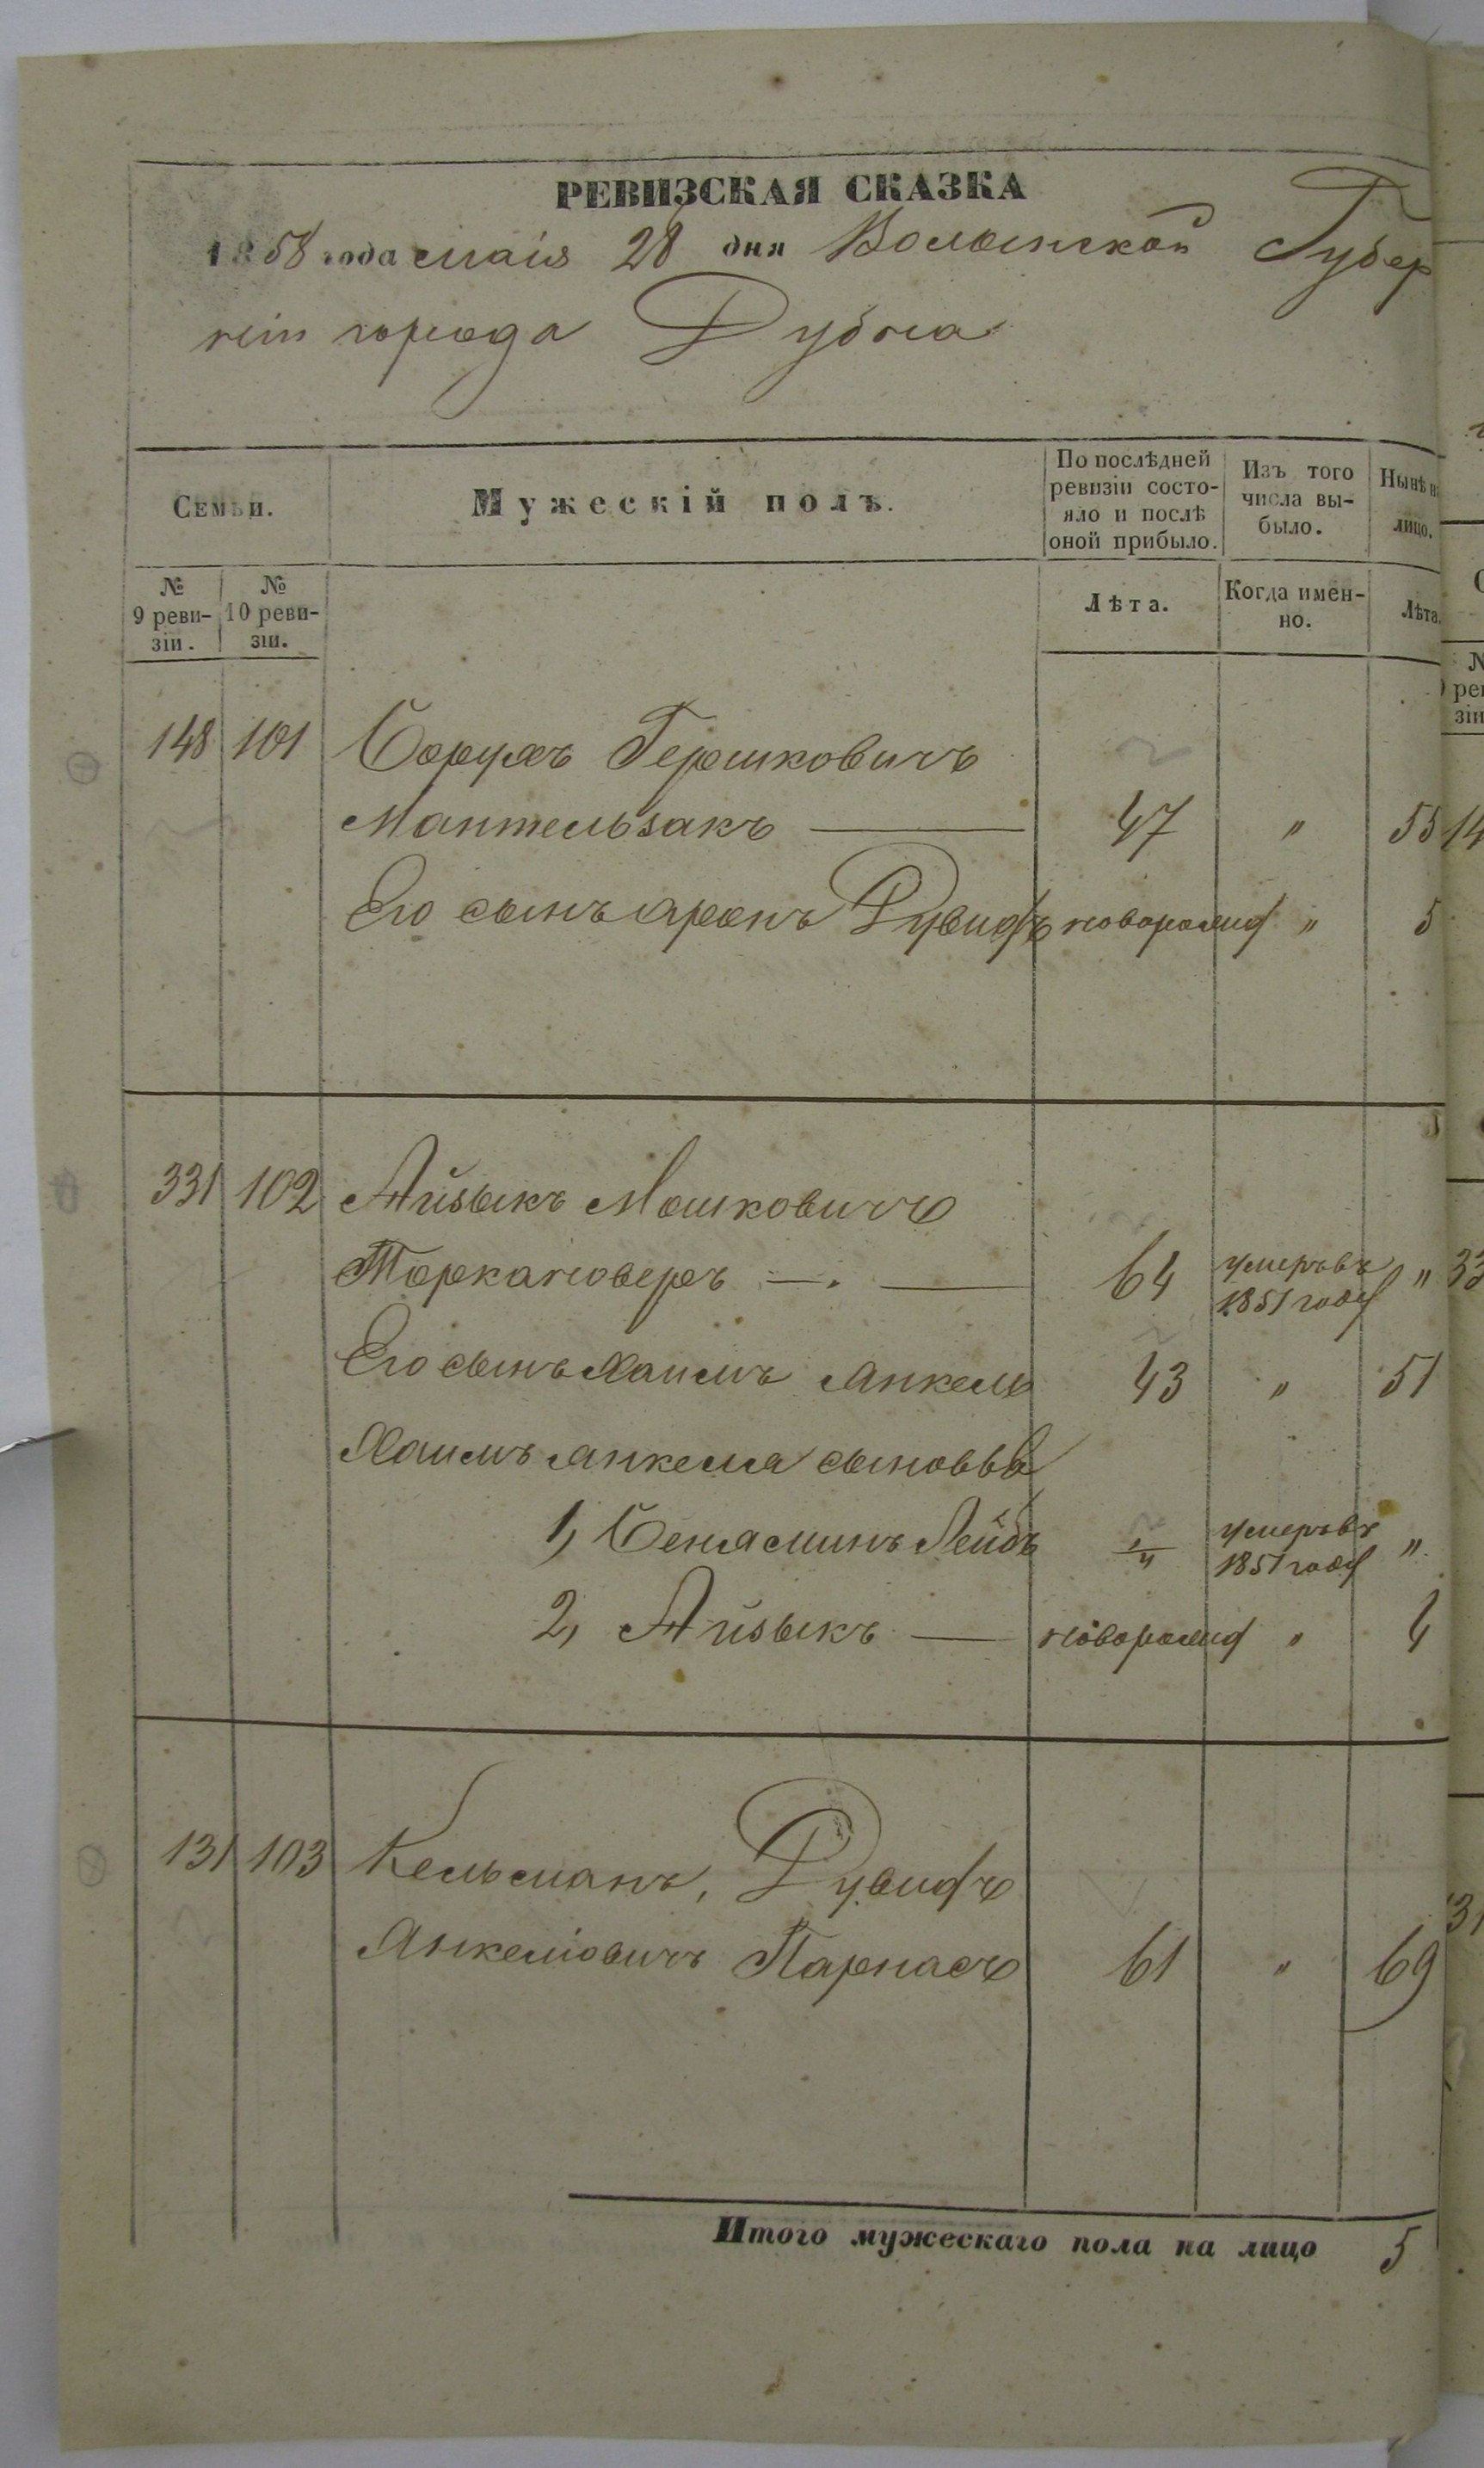 РЕВИЗСКАЯ СКАЗКА
1858 года маія 28 дня Волынской Губер
ніи города Дубна
Семьи.
Мужескій полъ.
По послѣдней ревизіи состо-
яло и послѣ
оной прибыло.
Изъ того
числа вы-
было.
Нынѣ н
лицо.
№
9 реви-
зіи.
№
10 реви-
зіи.
Лѣта.
Когда имен-
но.
Лѣта.
148 101 Борухъ Гершковичъ
Мантельзакъ — 47 " 55
Его сынъ Аронъ Дувидъ новорожд " 5
331 102 Айзыкъ Мошковичъ
Торкановеръ — . — 64 умеръ въ 1851 году "
Его сынъ Хаимъ Янкель 43 " 51
Хаимъ Янкеля сыновья
1, Беняминъ Лейбъ умеръ въ 1851 году "
2, Айзыкъ — новорожд " 4
131 103 Кельманъ, Дувидъ
Янкеліовичъ Парнасъ 61 " 69
Итого мужескаго пола на лицо 5